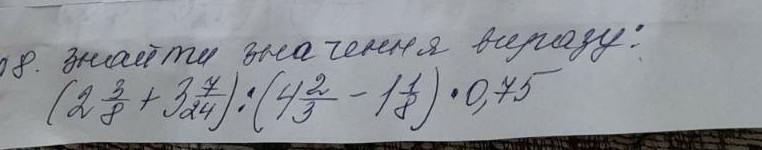 08. знайти значення виразу:
(2 3/8 + 3 7/24) : (4 2/3 - 1 1/8) · 0,75